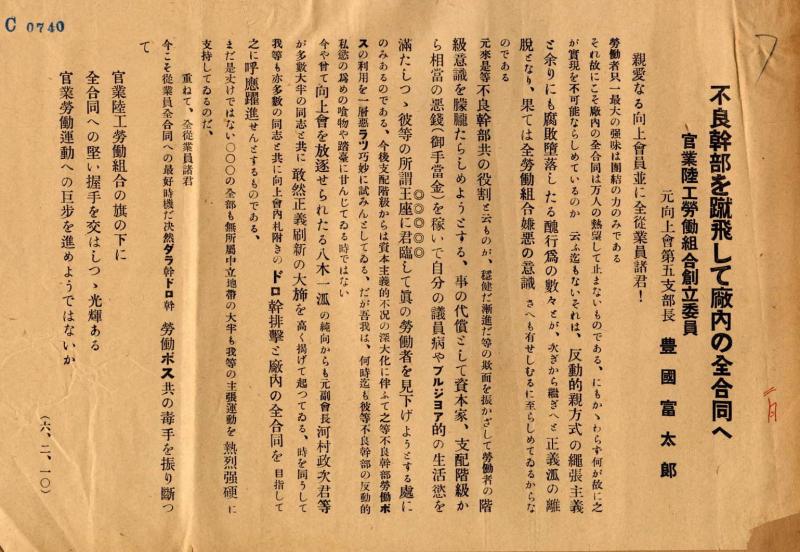 C 0740
不良幹部を蹴飛して廠内の全合同へ
官業陸工勞働組合創立委員
元向上會第五支部長 豊國富太郎
親愛なる向上會員並に全從業員諸君！
勞働者只一最大の强味は團結の力のみである
それ故にこそ廠内の全合同は万人の熱望して止まないものである、にもかゝわらず何が故に之
が實現を不可能ならしめているのか 云ふ迄もないそれは、反動的親方式の繩張主義
と余りにも腐敗墮落したる醜行爲の數々とが、次ぎから繼ぎへと正義派の離
脱となり、果ては全勞働組合嫌惡の意識さへも有せしむるに至らしめてゐるからな
のである
元來是等不良幹部共の役割と云ものが、穩健だ漸進だ等の欺面を振かざして勞働者の階
級意識を朦朧たらしめようとする、事の代償として資本家、支配階級か
ら相當の惡錢(御手當金)を稼いで自分の議員病やブルジヨア的の生活慾を
◎◎◎◎◎
滿たしつゝ彼等の所謂王座に君臨して眞の勞働者を見下げようとする處に
のみあるのである、今後支配階級からは資本主義的不況の深大化に伴ふて之等不良幹部勞働ボ
スの利用を一層惡ラツ巧妙に試みんとしてゐる、だが吾我は、何時迄も彼等不良幹部の反動的
私慾の爲めの喰物や踏臺に甘んじてゐる時ではない
今や甞て向上會を放逐せられたる八木一派の純向からも元副會長河村政次君等
が多數大半の同志と共に 敢然正義刷新の大旆を 高く揭げて起つてゐる、時を同うして
我等も亦多數の同志と共に向上會内札附きのドロ幹排擊と廠内の全合同を 目指して
之に呼應躍進せんとするものである、
まだ是丈けではない〇〇〇の全部も無所屬中立地帶の大半も我等の主張運動を 熱烈强硬に
支持してゐるのだ、
重ねて、全從業員諸君
今こそ從業員全合同への最好時機だ決然ダラ幹ドロ幹 勞働ボス共の毒手を振り斷つ
て
官業陸工勞働組合の旗の下に
全合同への堅い握手を交はしつゝ光輝ある
官業勞働運動への巨步を進めようではないか
(六、二、一〇)